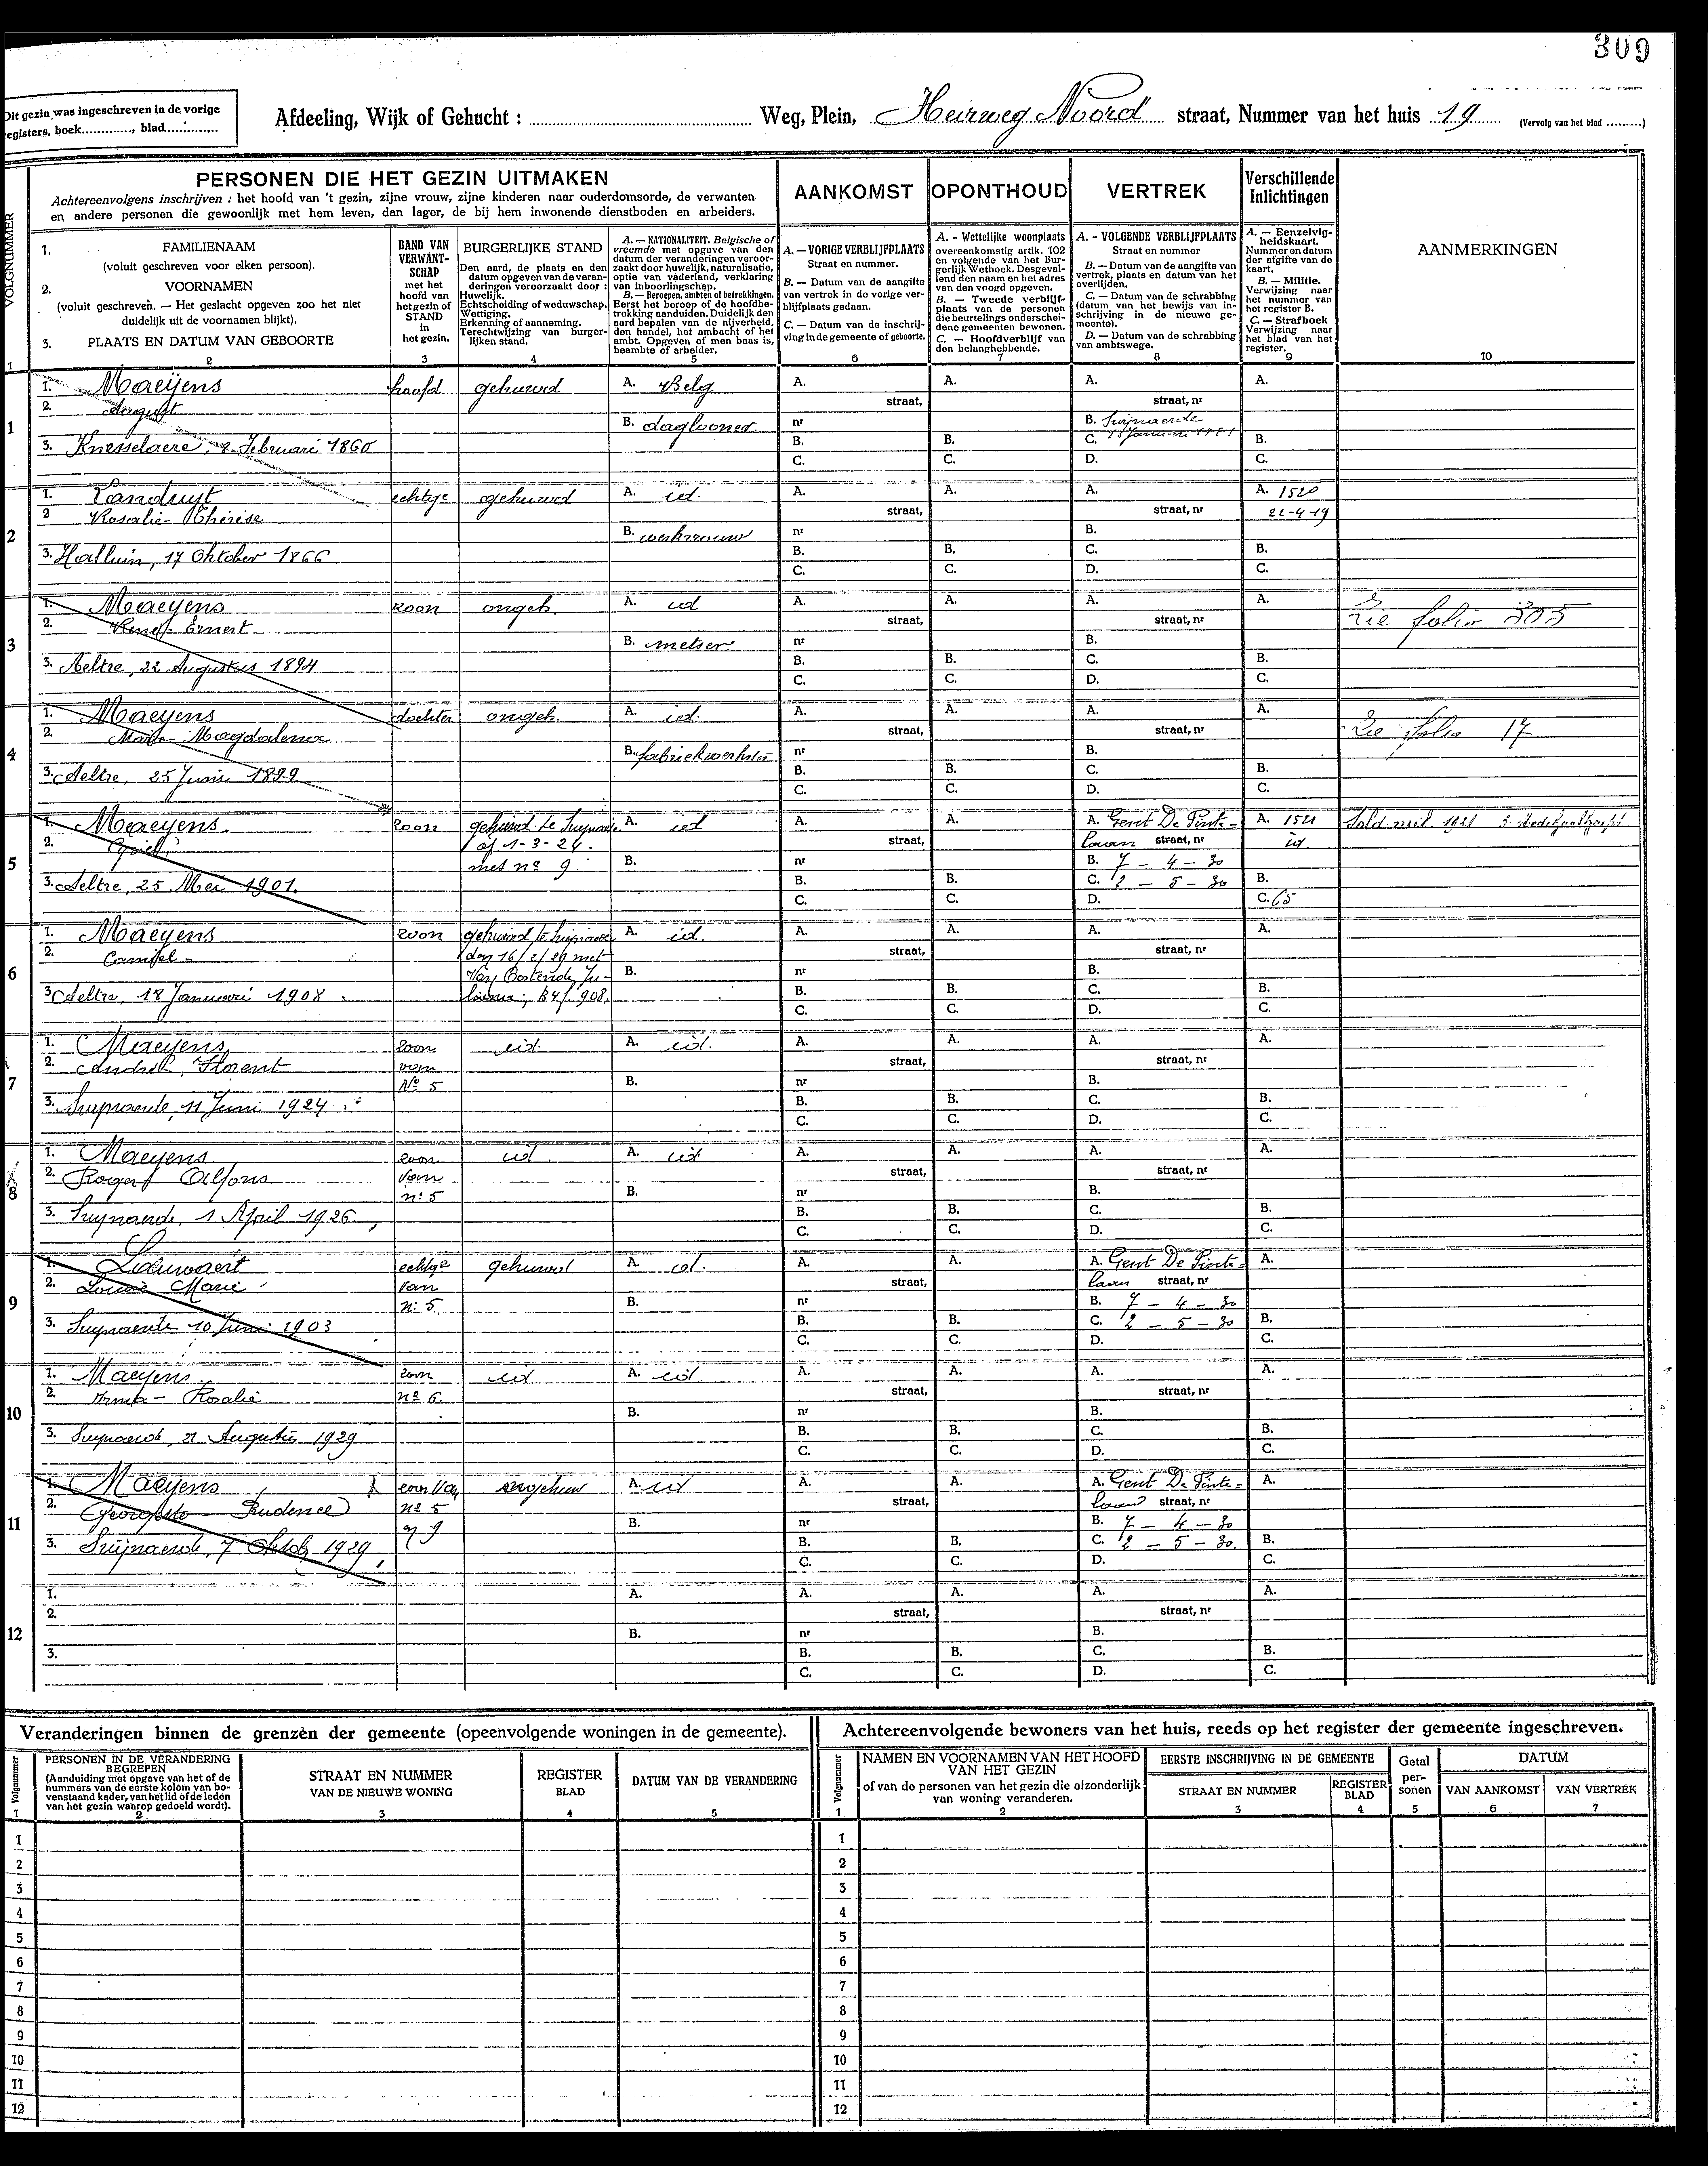 309
Dit gezin was ingeschreven in de vorige
registers, boek............, blad.............
Afdeeling, Wijk of Gehucht : Weg, Plein, Heirweg Noord straat, Nummer van het huis 19 (Vervolg van het blad .........)
VOLGNUMMER
PERSONEN DIE HET GEZIN UITMAKEN
Achtereenvolgens inschrijven : het hoofd van 't gezin, zijne vrouw, zijne kinderen naar ouderdomsorde, de verwanten
en andere personen die gewoonlijk met hem leven, dan lager, de bij hem inwonende dienstboden en arbeiders.
AANKOMST OPONTHOUD VERTREK
Verschillende
Inlichtingen
AANMERKINGEN
1. FAMILIENAAM
(voluit geschreven voor elken persoon).
2. VOORNAMEN
(voluit geschreven. — Het geslacht opgeven zoo het niet
duidelijk uit de voornamen blijkt).
3. PLAATS EN DATUM VAN GEBOORTE
BAND VAN
VERWANT-
SCHAP
met het
hoofd van
het gezin of
STAND
in
het gezin.
BURGERLIJKE STAND
Den aard, de plaats en den
datum opgeven van de veran-
deringen veroorzaakt door :
Huwelijk.
Echtscheiding of weduwschap.
Wettiging.
Erkenning of aanneming.
Terechtwijzing van burger-
lijken stand.
A. — NATIONALITEIT. Belgische of
vreemde met opgave van den
datum der veranderingen veroor-
zaakt door huwelijk, naturalisatie,
optie van vaderland, verklaring
van inboorlingschap.
B. — Beroepen, ambten of betrekkingen.
Eerst het beroep of de hoofdbe-
trekking aanduiden. Duidelijk den
aard bepalen van de nijverheid,
den handel, het ambacht of het
ambt. Opgeven of men baas is,
beambte of arbeider.
A. — VORIGE VERBLIJFPLAATS
Straat en nummer.
B. — Datum van de aangifte
van vertrek in de vorige ver-
blijfplaats gedaan.
C. — Datum van de inschrij-
ving in de gemeente of geboorte.
A. - Wettelijke woonplaats
overeenkomstig artik. 102
en volgende van het Bur-
gerlijk Wetboek. Desgeval-
lend den naam en het adres
van den voogd opgeven.
B. — Tweede verblijf-
plaats van de personen
die beurtelings onderschei-
dene gemeenten bewonen.
C. — Hoofdverblijf van
den belanghebbende.
A. - VOLGENDE VERBLIJFPLAATS
Straat en nummer
B. — Datum van de aangifte van
vertrek, plaats en datum van het
overlijden.
C. — Datum van de schrabbing
(datum van het bewijs van in-
schrijving in de nieuwe ge-
meente).
D. — Datum van de schrabbing
van ambtswege.
A. — Eenzelvig-
heidskaart.
Nummer en datum
der afgifte van de
kaart.
B. — Militie.
Verwijzing naar
het nummer van
het register B.
C. — Strafboek
Verwijzing naar
het blad van het
register.
1 2 3 4 5 6 7 8 9 10
1
1. Maeÿens hoofd gehuwd A. Belg A. A. A. A.
2. August straat, straat, nr
B. daglooner nr B. Swijnaerde
3. Knesselaere, 8 Februari 1860 B. B. C. 15 Januari B.
C. C. D. C.
2
1. Landuyt echtge gehuwd A. id. A. A. A. A. 1520
2 Rosalie - Thérèse straat, straat, nr 22-4-19
B. werkvrouw nr B.
3. Halluin, 17 Oktober 1866 B. B. C. B.
C. C. D. C.
3
1. Maeyens zoon ongeh. A. id A. A. A. A. Zie folio 305
2. René - Ernest straat, straat, nr
B. metser nr B.
3. Aeltre, 22 Augustus 1894 B. B. C. B.
C. C. D. C.
4
1. Maeyens dochter ongeh. A. id. A. A. A. A. Zie folio 17
2. Maria - Magdalena straat, straat, nr
B. fabriekwerkster nr B.
3. Aeltre, 25 Juni 1899 B. B. C. B.
C. C. D. C.
5
1. Maeyens zoon gehuwd te A. id A. A. A. Gent De Pinte = A. 1521 Sold. mil. 1921
2. Cyriel of 1-3-24. straat, laan straat, nr id
met no 9. B. nr B. 7 - 4 - 30
3. Aeltre, 25 Mei 1901. B. B. C. 2 - 5 - 30 B.
C. C. D. C. 65
6
1. Maeyens zoon gehuwd te A. id. A. A. A. A.
2. Camiel - den 16/2/29 met straat, straat, nr
Van Oostende Ju- B. nr B.
3 Aeltre, 18 Januari 1908. B4 f. 908. B. B. C. B.
C. C. D. C.
7
1. Maeyens zoon id. A. id. A. A. A. A.
2. André, Florent van straat, straat, nr
No 5 B. nr B.
3. Swynaerde, 11 Juni 1924. B. B. C. B.
C. C. D. C.
8
1. Maeyens zoon id. A. id A. A. A. A.
2. Roger Alfons van straat, straat, nr
no 5 B. nr B.
3. Swynaerde, 1 April 1926. B. B. C. B.
C. C. D. C.
9
1. echtge gehuwd A. id. A. A. A. Gent De Pinte = A.
2. Marie van straat, laan straat, nr
no 5 B. nr B. 7 - 4 - 30
3. Swynaerde 10 Juni 1903 B. B. C. 2 - 5 - 30 B.
C. C. D. C.
10
1. Maeyens zoon id A. id. A. A. A. A.
2. Irma - Rosalie no 6. straat, straat, nr
B. nr B.
3. Swynaerde, 21 Augustus 1929 B. B. C. B.
C. C. D. C.
11
1. Maeyens zoon van ongehuw A. id A. A. A. Gent De Pinte = A.
2. Prudence no 5 straat, laan straat, nr
9 B. nr B. 7 - 4 - 30
3. Swijnaerde, 7 Oktob 1929, B. B. C. 2 - 5 - 30. B.
C. C. D. C.
12
1. A. A. A. A. A.
2. straat, straat, nr
B. nr B.
3. B. B. C. B.
C. C. D. C.
Veranderingen binnen de grenzen der gemeente (opeenvolgende woningen in de gemeente).
Volgnummer
PERSONEN IN DE VERANDERING
BEGREPEN
(Aanduiding met opgave van het of de
nummers van de eerste kolom van bo-
venstaand kader, van het lid of de leden
van het gezin waarop gedoeld wordt).
STRAAT EN NUMMER
VAN DE NIEUWE WONING
REGISTER
BLAD
DATUM VAN DE VERANDERING
1 2 3 4 5
1
2
3
4
5
6
7
8
9
10
11
12
Achtereenvolgende bewoners van het huis, reeds op het register der gemeente ingeschreven.
Volgnummer
NAMEN EN VOORNAMEN VAN HET HOOFD
VAN HET GEZIN
of van de personen van het gezin die afzonderlijk
van woning veranderen.
EERSTE INSCHRIJVING IN DE GEMEENTE
STRAAT EN NUMMER
REGISTER
BLAD
Getal
per-
sonen
DATUM
VAN AANKOMST VAN VERTREK
1 2 3 4 5 6 7
1
2
3
4
5
6
7
8
9
10
11
12